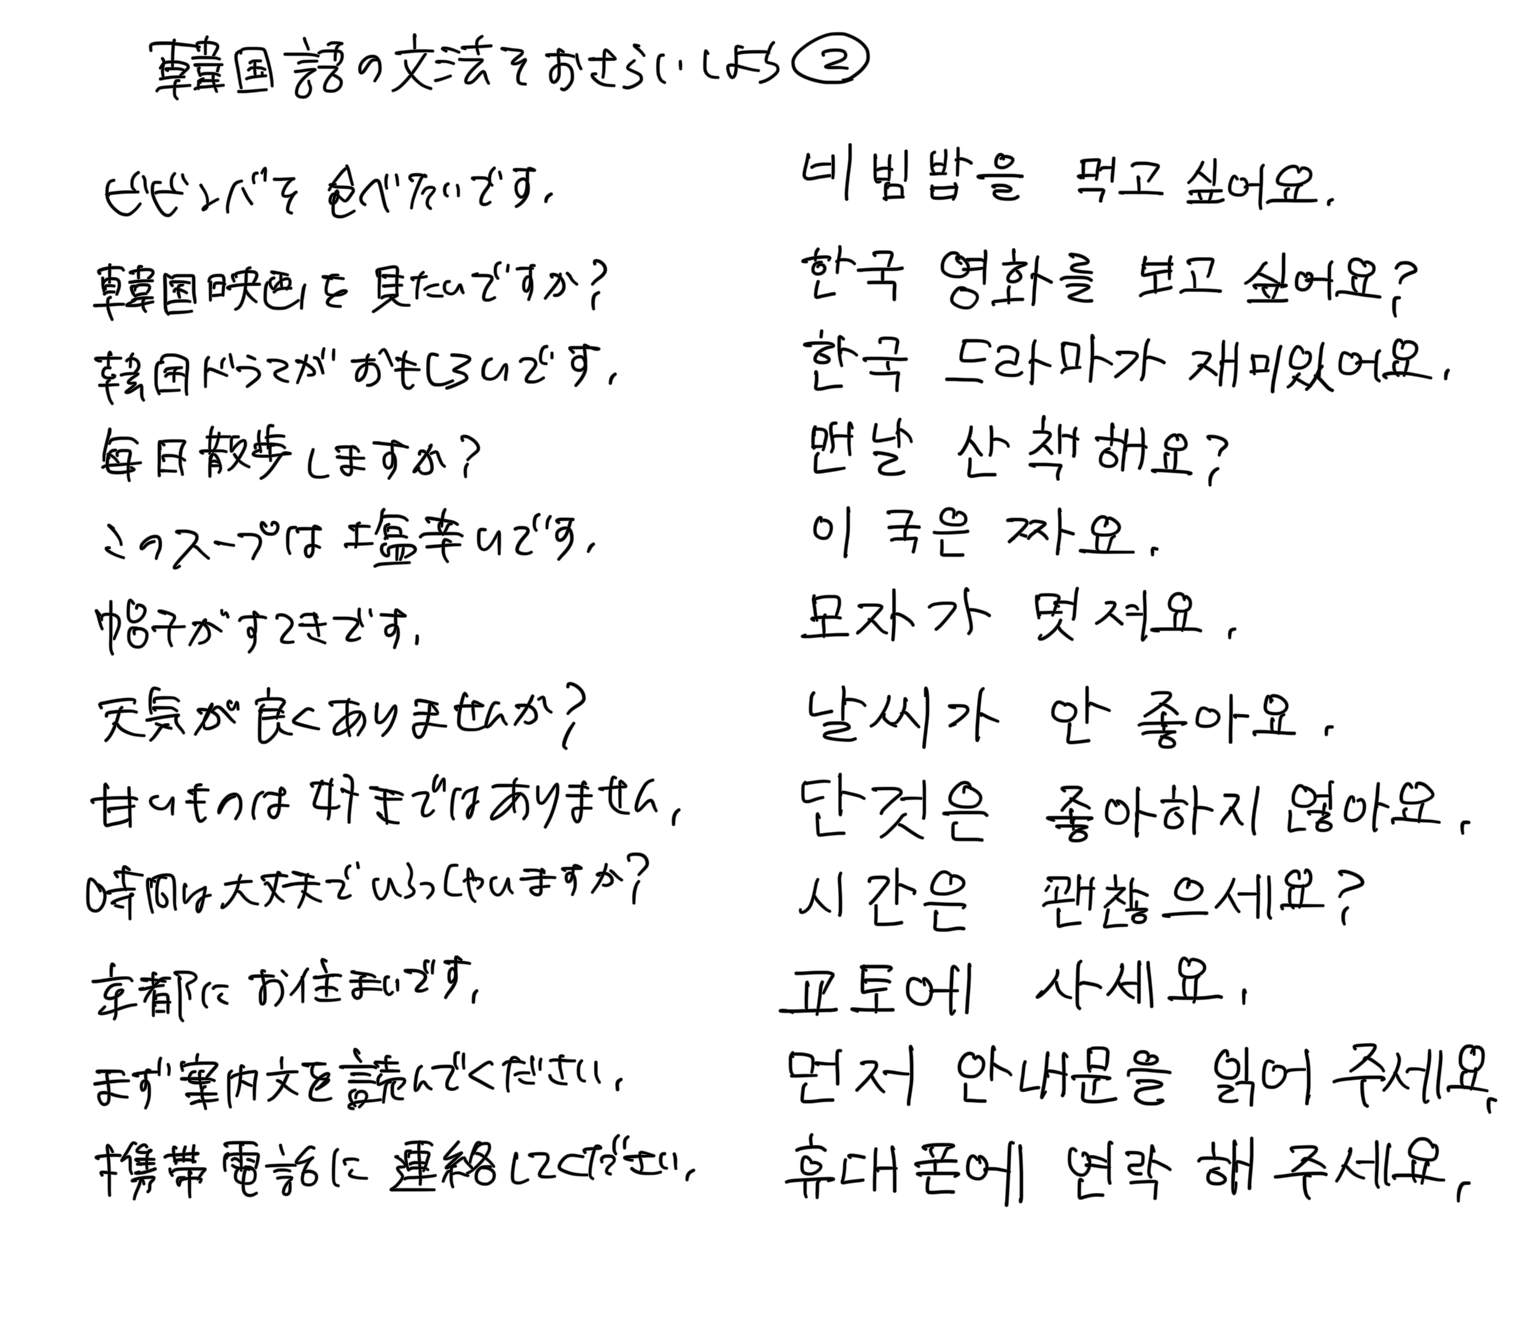 韓国語の文法をおさらいしよう②
ビビンバを食べたいです. 비빔밥을 먹고 싶어요.
韓国映画を見たいですか? 한국 영화를 보고 싶어요?
韓国ドラマがおもしろいです. 한국 드라마가 재미있어요.
毎日散歩しますか? 맨날 산책해요?
このスープは塩辛いです. 이 국은 짜요.
帽子がすてきです. 모자가 멋져요.
天気が良くありませんか? 날씨가 안 좋아요.
甘いものは好きではありません. 단것은 좋아하지 않아요.
時間は大丈夫でいらっしゃいますか? 시간은 괜찮으세요?
京都にお住まいです. 교토에 사세요.
まず案内文を読んでください. 먼저 안내문을 읽어 주세요.
携帯電話に連絡してください. 휴대폰에 연락해 주세요.